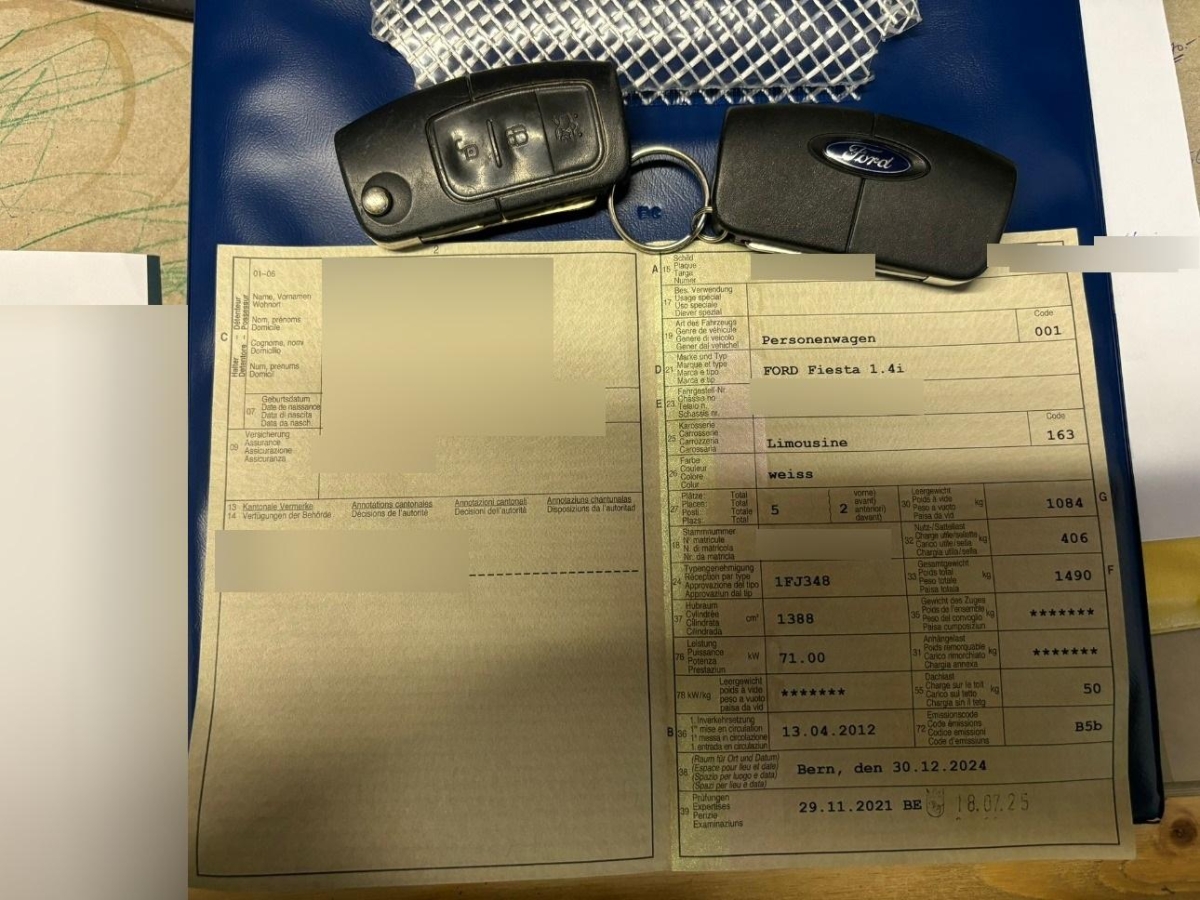 Ford
2
01–06
Name, Vornamen
Wohnort
Nom, prénoms
Domicile
Cognome, nomi
Domicilio
Num, prenums
Domicil
C
Halter – Détenteur
Detentore – Possessur
07
Geburtsdatum
Date de naissance
Data di nascita
Data da nasch.
09
Versicherung
Assurance
Assicurazione
Assicuranza
13 Kantonale Vermerke
14 Verfügungen der Behörde
Annotations cantonales
Décisions de l'autorité
Annotazioni cantonali
Decisioni dell'autorità
Annotaziuns chantunalas
Disposiziuns da l'autoritad
A 15
Schild
Plaque
Targa
Numer
17
Bes. Verwendung
Usage spécial
Uso speciale
Diever spezial
19
Art des Fahrzeugs
Genre de véhicule
Genere di veicolo
Gener dal vehichel
Personenwagen
Code
001
D 21
Marke und Typ
Marque et type
Marca e tipo
Marca e tip
FORD Fiesta 1.4i
E 23
Fahrgestell-Nr.
Châssis no
Telaio n.
Schassis nr.
25
Karosserie
Carrosserie
Carrozzeria
Carossaria
Limousine
Code
163
26
Farbe
Couleur
Colore
Colur
weiss
27
Plätze: Total
Places: Total
Posti: Totale
Plazs: Totale
5
2
vorne)
avant)
anteriori)
davant)
30
Leergewicht
Poids à vide
Peso a vuoto
Paisa da vid
kg
1084
G
18
Stammnummer
N° matricule
N. di matricola
Nr. da matricla
32
Nutz-/Sattellast
Charge utile/sellette
Carico utile/sella
Chargia utila/sella
kg
406
24
Typengenehmigung
Réception par type
Approvazione del tipo
Approvaziun dal tip
1FJ348
33
Gesamtgewicht
Poids total
Peso totale
Paisa totala
kg
1490
F
37
Hubraum
Cylindrée
Cilindrata
Cilindrada
cm³
1388
35
Gewicht des Zuges
Poids de l'ensemble
Peso del convoglio
Paisa cumposiziun
kg
*******
76
Leistung
Puissance
Potenza
Prestaziun
kW
71.00
31
Anhängelast
Poids remorquable
Carico rimorchiato
Chargia annexa
kg
*******
78 kW/kg
Leergewicht
poids à vide
peso a vuoto
paisa da vid
*******
55
Dachlast
Charge sur le toit
Carico sul tetto
Chargia sin il tetg
kg
50
B 36
1. Inverkehrsetzung
1re mise en circulation
1a messa in circolazione
1. entrada en circulaziun
13.04.2012
72
Emissionscode
Code émissions
Codice emissioni
Code d'emissiuns
B5b
38
(Raum für Ort und Datum)
(Espace pour lieu et date)
(Spazio per luogo e data)
(Spazi per lieu e data)
Bern, den 30.12.2024
39
Prüfungen
Expertises
Perizie
Examinaziuns
29.11.2021 BE
18.07.25